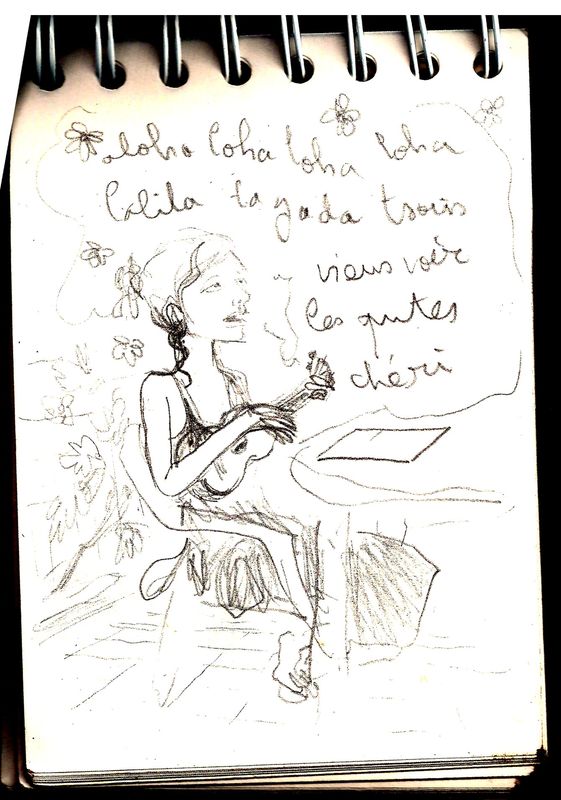 aloha loha loha loha
lalila tagada tsoin
viens voir
les putes
chéri